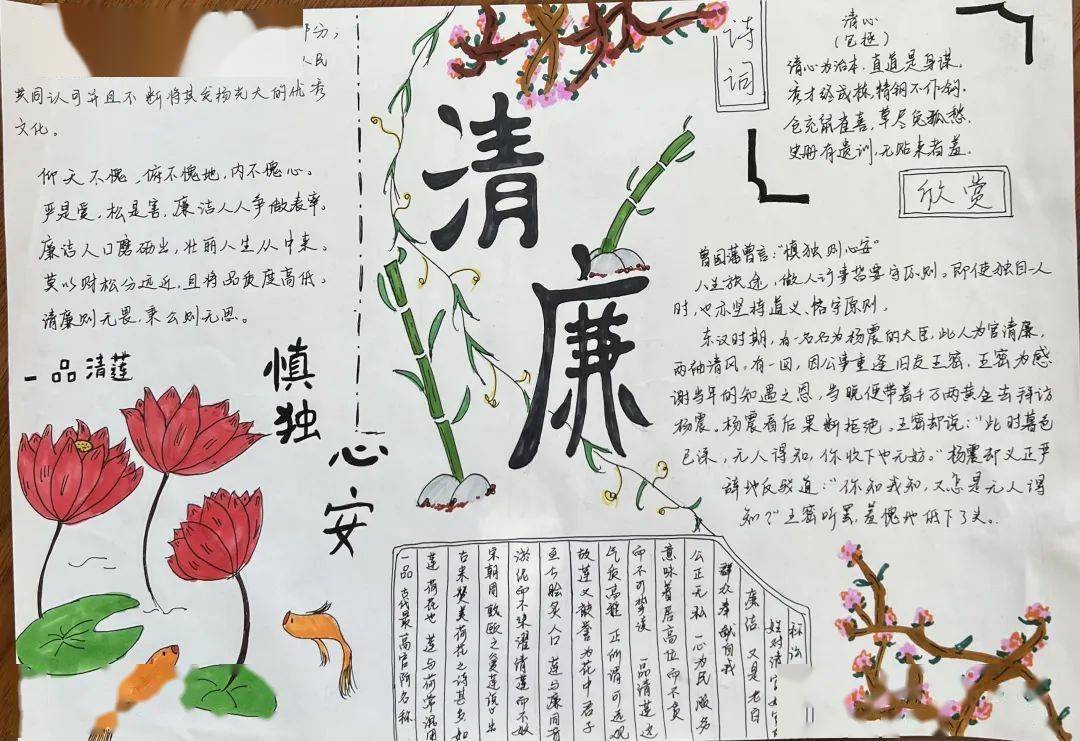 部分，
人民
共同认可并且不断将其发扬光大的优秀
文化。
仰天不愧，俯不愧地，内不愧心。
严是爱，松是害，廉洁人人争做表率。
廉洁人口磨砺出，壮丽人生从中来。
莫以财松分远近，且将品质度高低。
清廉则无畏，秉公则无恩。
一品清莲
慎独
心安
清廉
诗词
清心
（包拯）
清心为治本，直道是身谋。
秀才终成栋，精钢不作钩。
仓充鼠雀喜，草尽兔狐愁。
史册有遗训，无贻来者羞。
欣赏
曾国藩曾言："慎独则心安"
人生旅途，做人行事皆要守原则。即使独自一人
时，也亦坚持道义、恪守原则。
东汉时期，有一名名为杨震的大臣，此人为官清廉，
两袖清风，有一回，因公事重逢旧友王密，王密为感
谢当年的知遇之恩，当晚便带着千万两黄金去拜访
杨震。杨震看后果断拒绝。王密却说："此时暮色
已深，无人得知，你收下也无妨。"杨震却义正严
辞地反驳道："你知我知，又怎是无人得
知？"王密听罢，羞愧地低下了头。
称讼
姓对清官
廉洁 又是老百
群众奉献自我
公正无私 一心为民 服务
意味着居高位而不贪
而不可亵渎 一品清莲 这
气质高雅 正所谓可远观
故莲又被誉为花中君子
鱼与脍炙人口 莲与廉同音
淤泥而不染濯清莲而不妖
宋朝周敦颐之爱莲说 出
古来赞美荷花之诗甚多 如
莲 荷花也 莲与荷常混用
一品 古代最高官阶名称